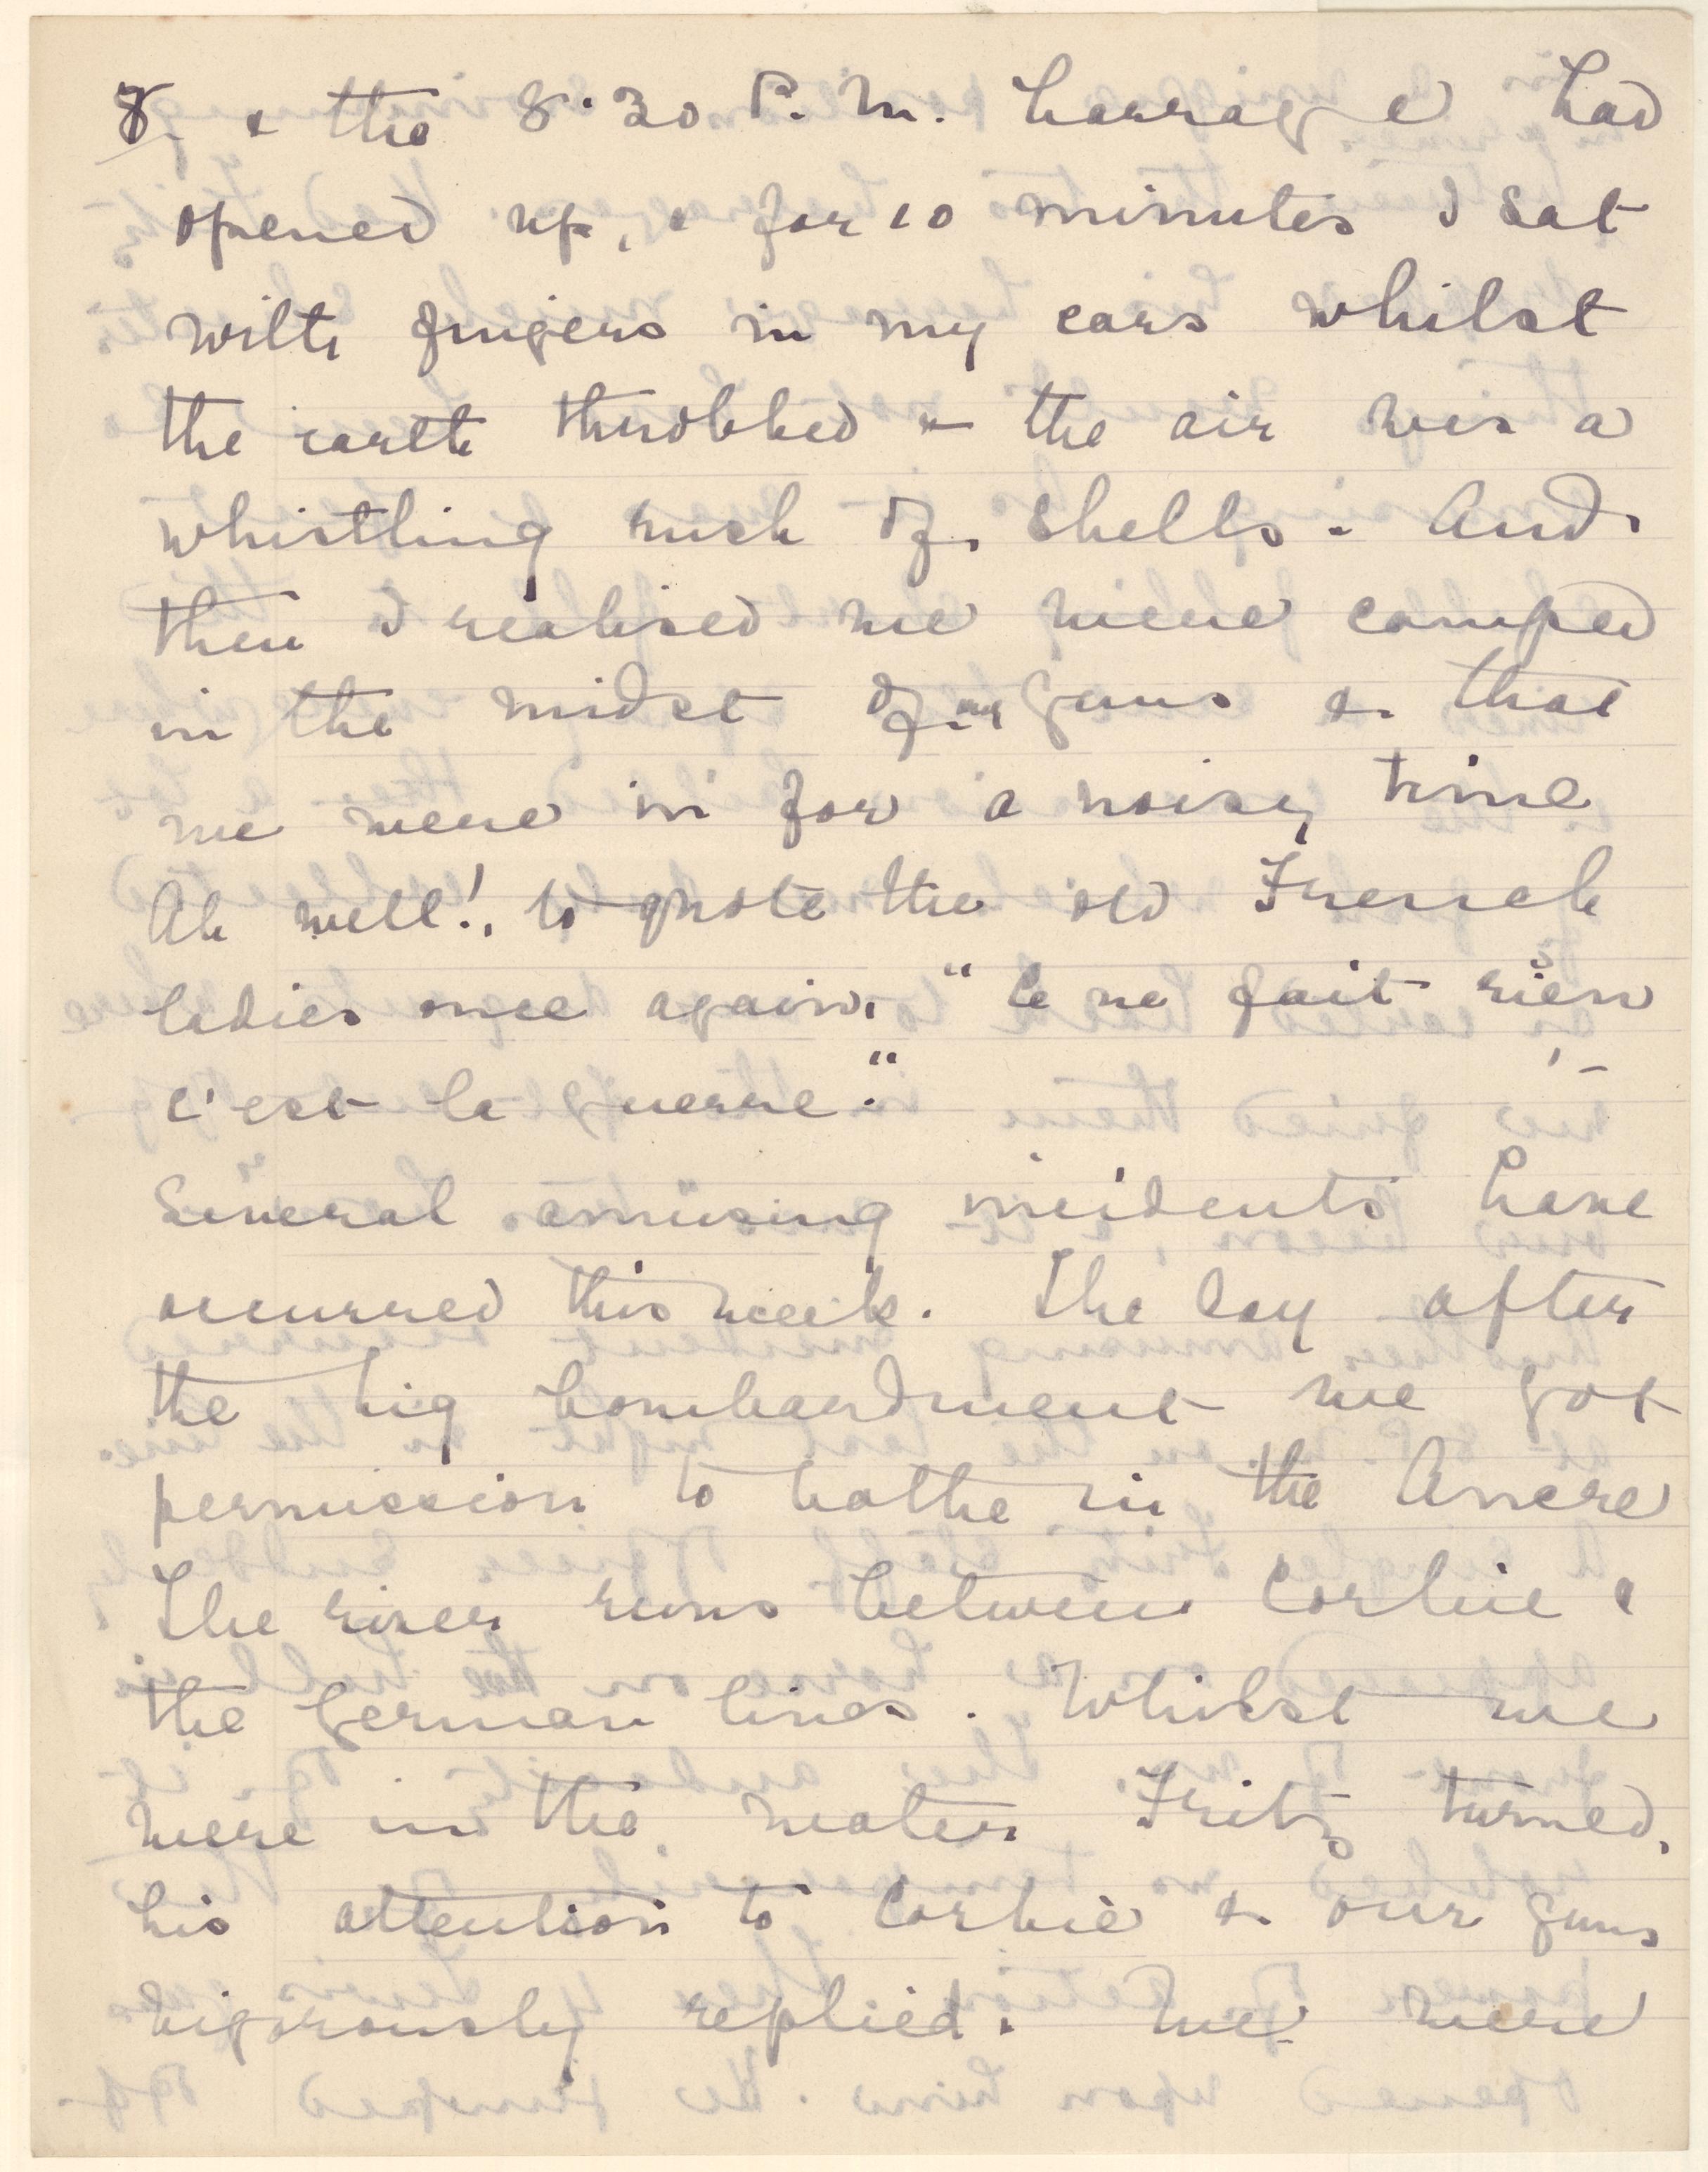 8. & the 8.30 P.M. barrage had
opened up, & for 10 minutes I sat
with fingers in my ears whilst
the earth throbbed & the air was a
whistling rush of shells. And
then I realised we were camped
in the midst of our guns & that
we were in for a noisy time
Ah well!, to quote the old French
ladies once again, "Ce ne fait rien
c'est la guerre."
Several amusing incidents have
occurred this week. The day after
the big bombardment we got
permission to bathe in the Ancre
The river runs between Corbie &
the German lines. Whilst we
were in the water Fritz turned
his attention to Corbie & our guns
vigorously replied. We were